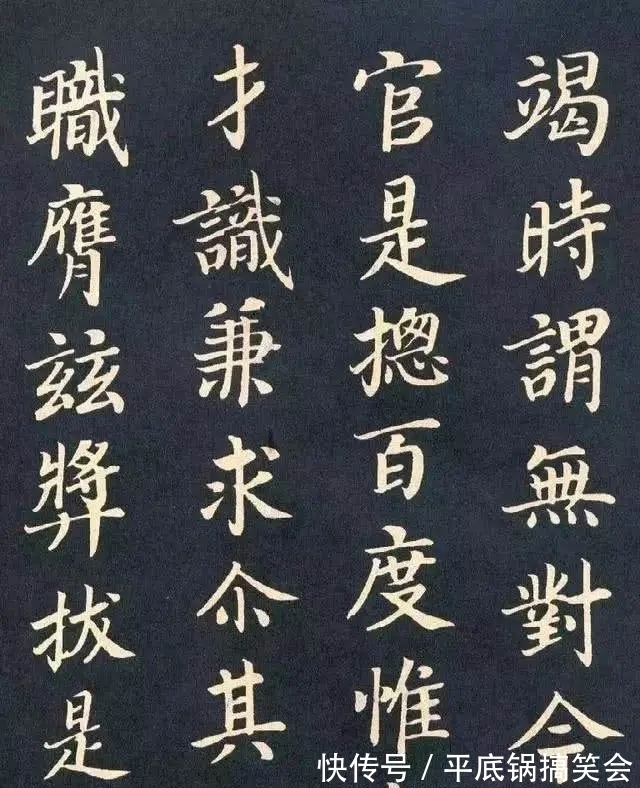 竭時謂無對今
官是摠百度惟
才識兼求尒其
職膺兹奬拔是
快传号 / 平底锅搞笑会